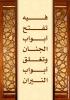 فيه
تفتح
أبواب
الجنان
وتغلق
أبواب
النيران